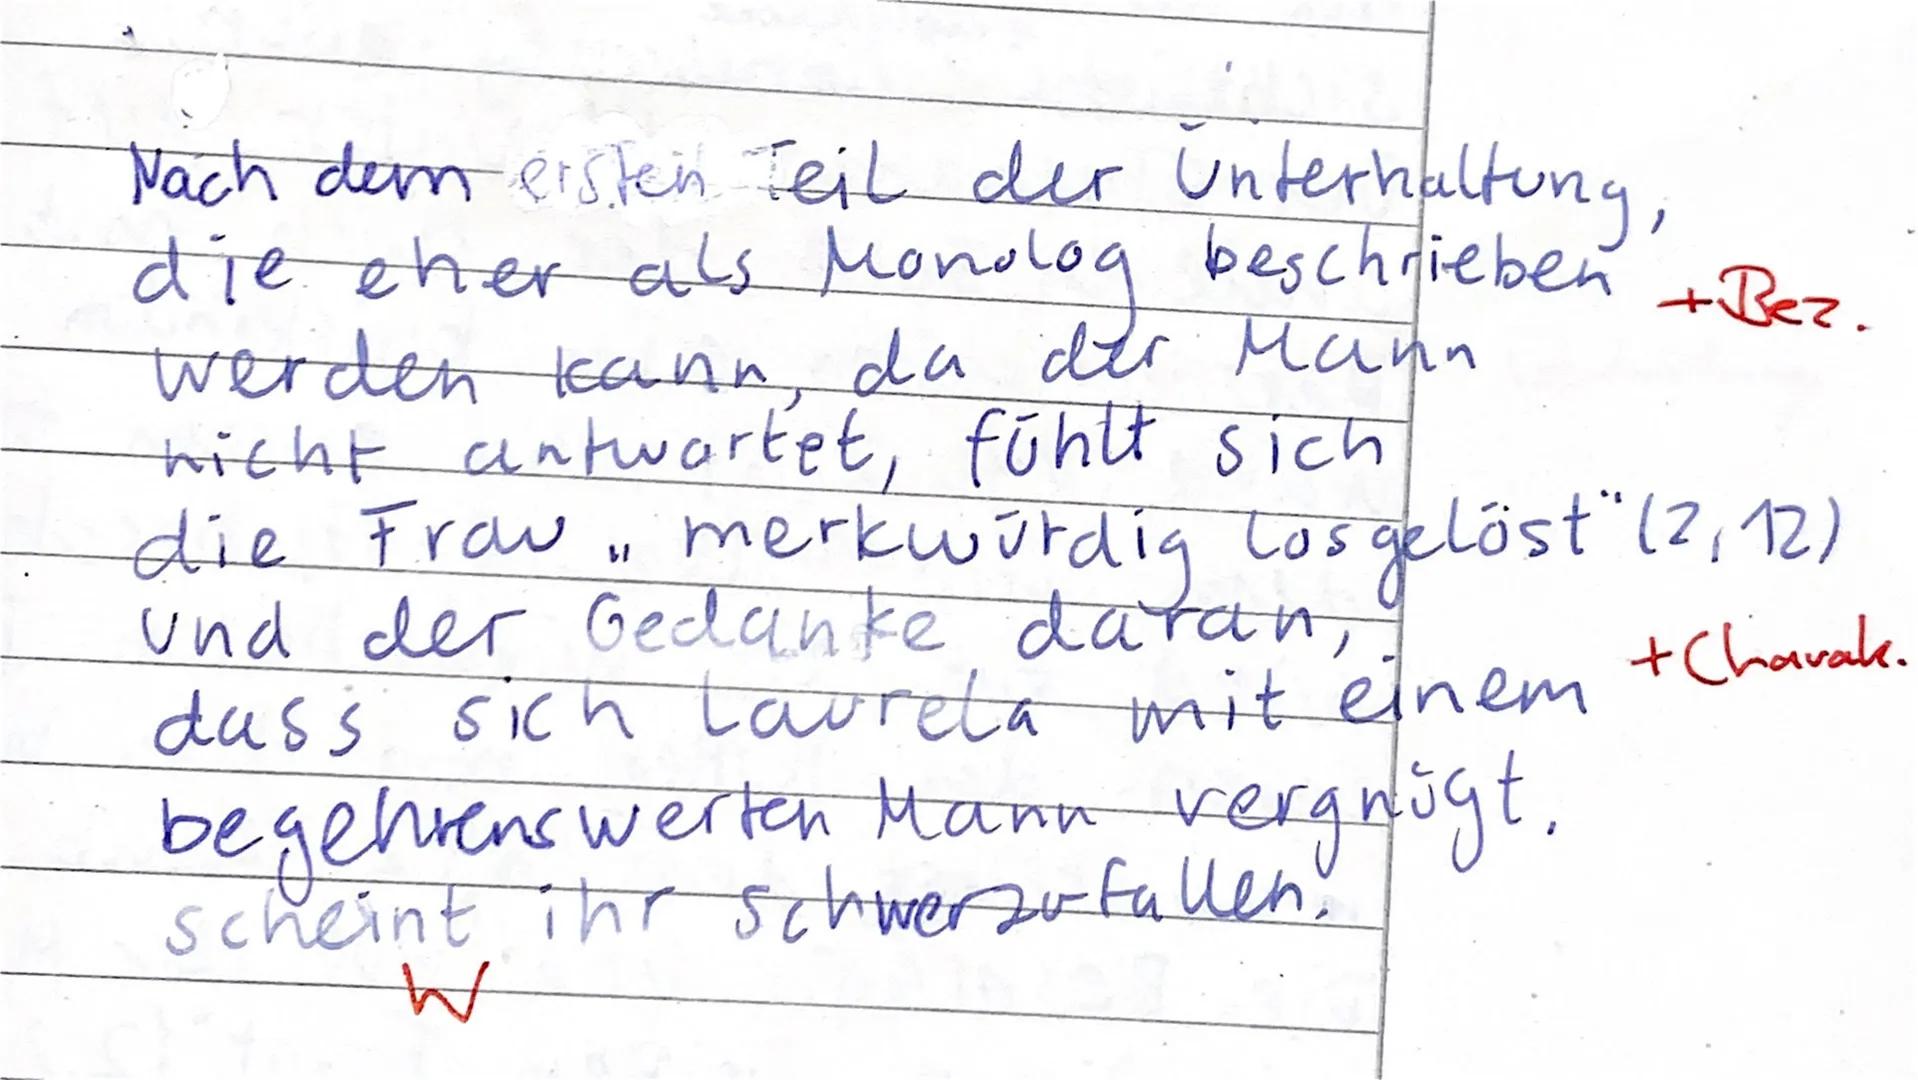 Nach dem ersten Teil der Unterhaltung,
die eher als Monolog beschrieben
+Bez.
werden kann, da der Mann
nicht antwortet, fühlt sich
die Frau „merkwürdig losgelöst" (2, 12)
und der Gedanke daran,
+Charak.
dass sich Laurela mit einem
begehrenswerten Mann vergnügt,
scheint ihr schwerzufallen.
W